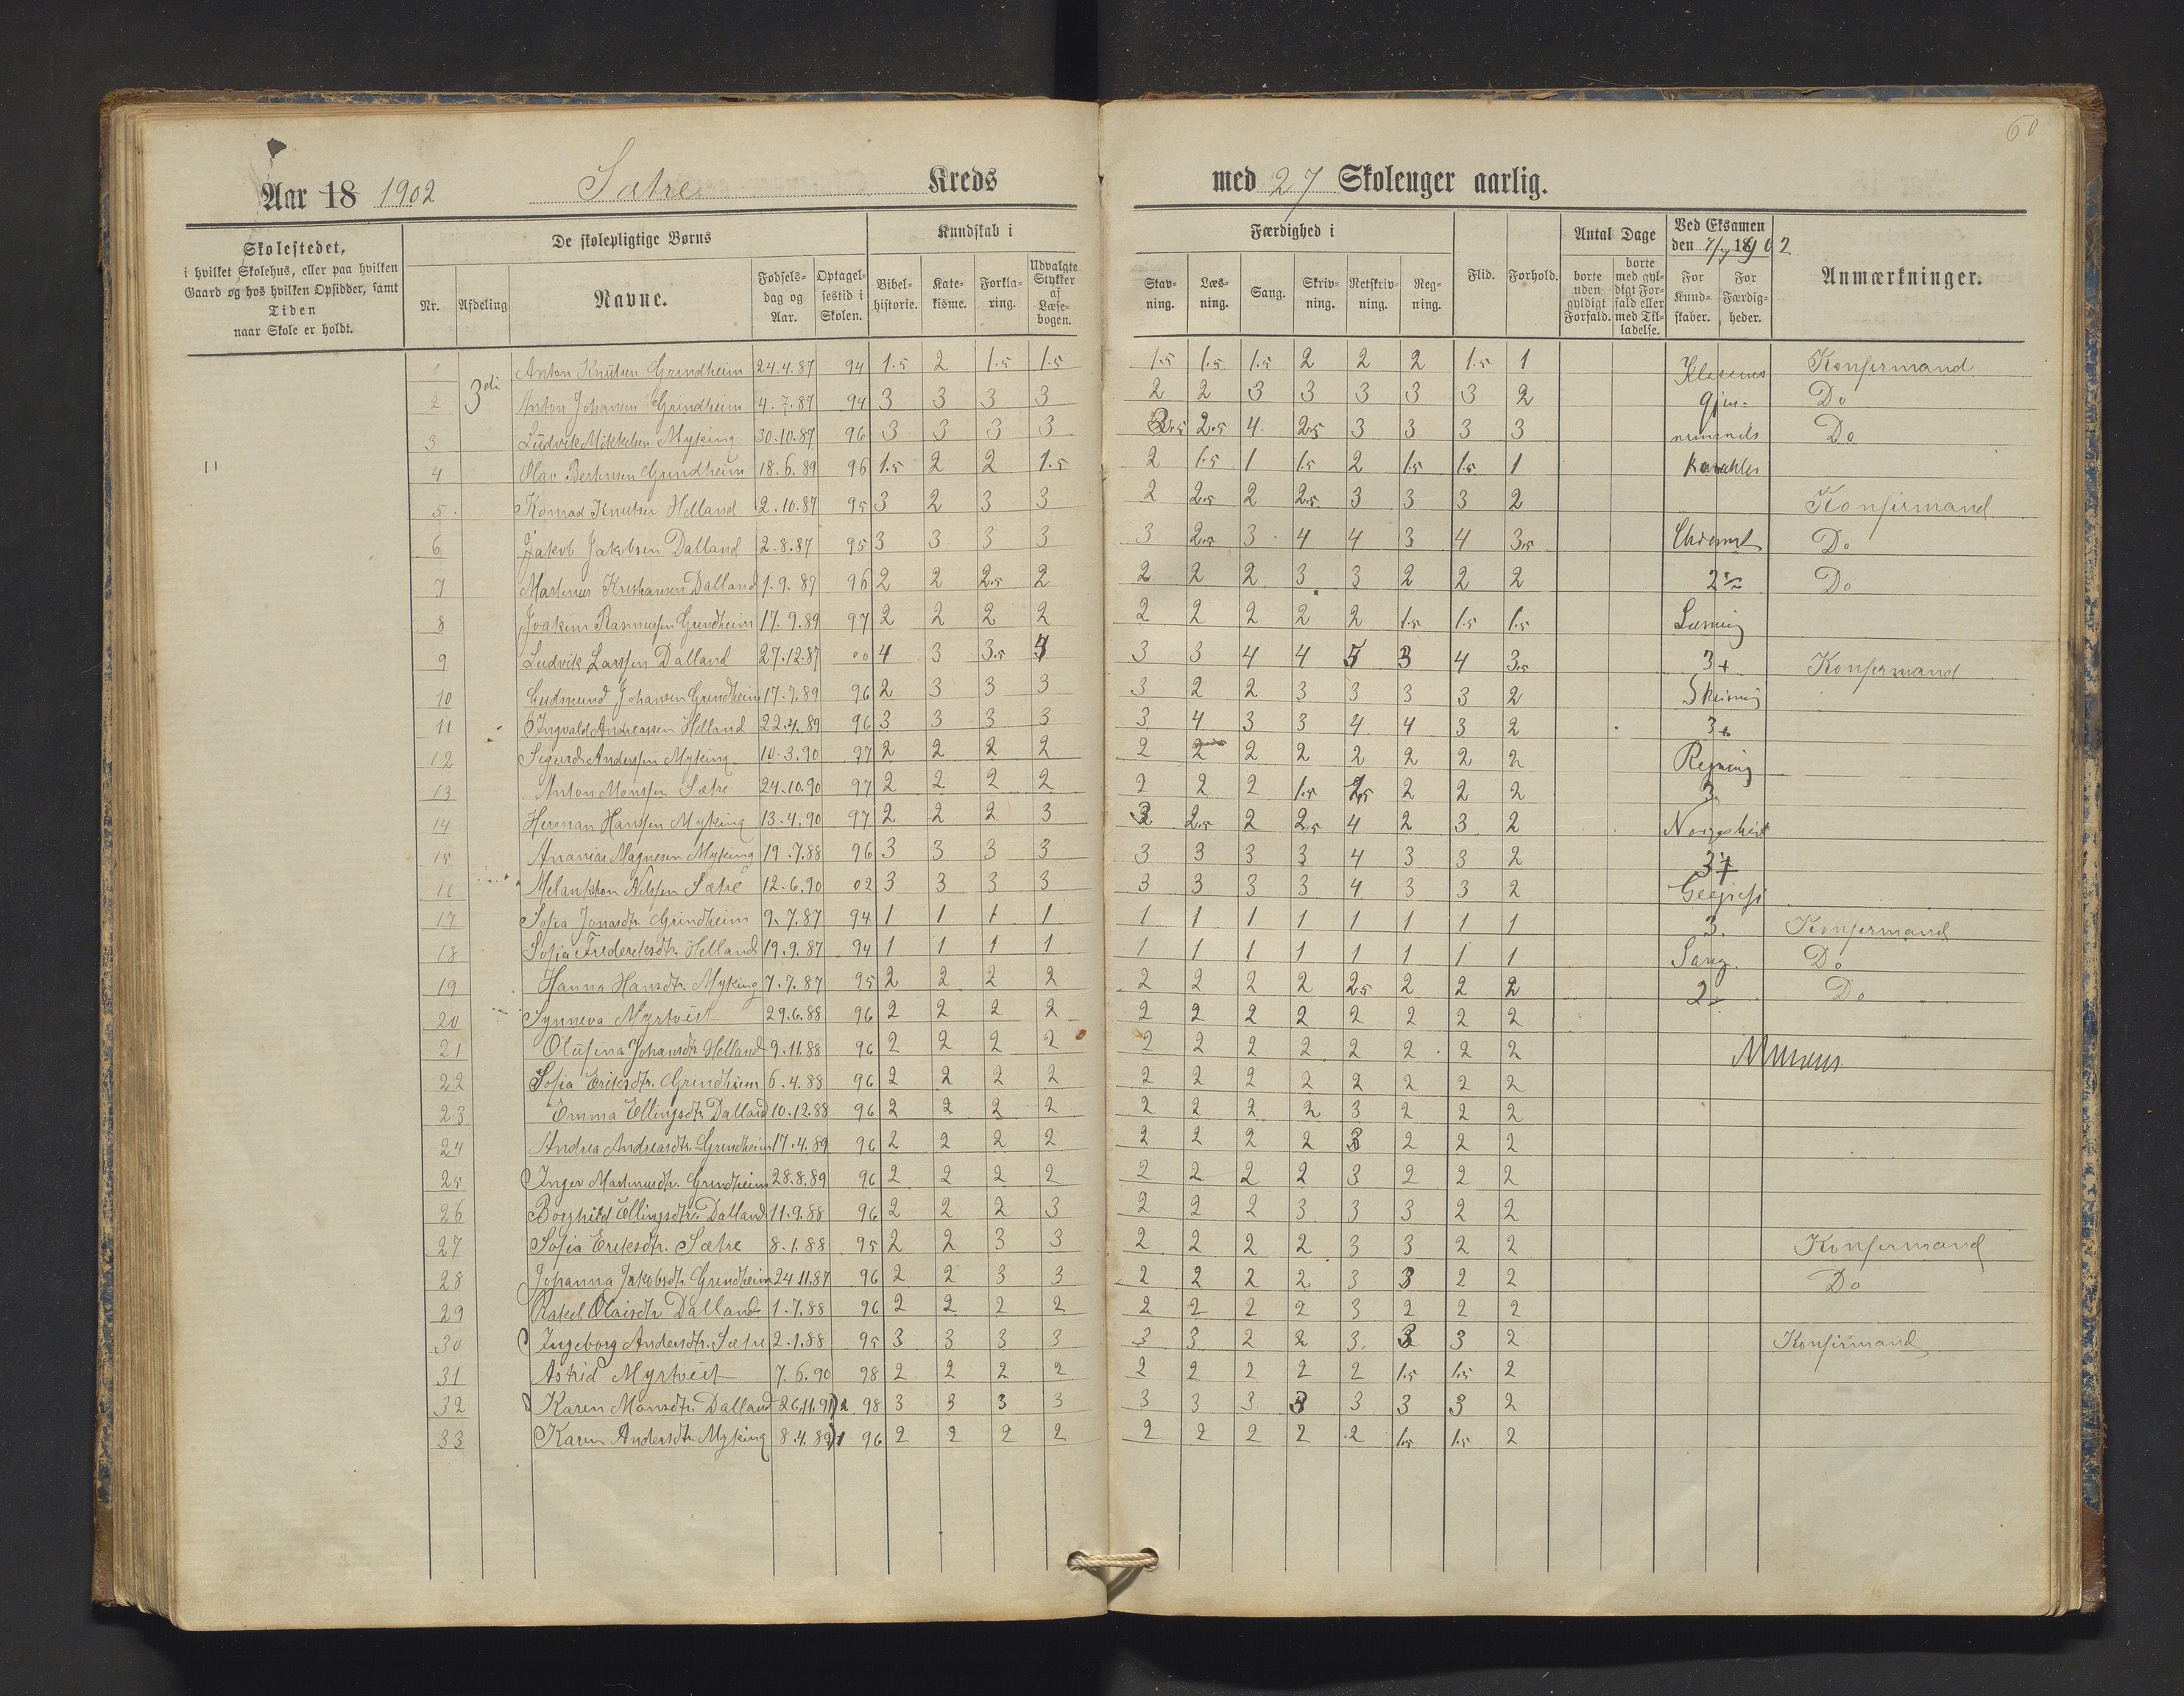 60
Aar 18 1902 Sætre Kreds med 27 Skoleuger aarlig.
Skolestedet,
i hvilket Skolehus, eller paa hvilken
Gaard og hos hvilken Opsidder, samt
Tiden
naar Skole er holdt.
De skolepligtige Børns
Nr. Afdeling Navne. Fødsels-dag og Aar. Optagel-sestid i Skolen.
Kundskab i
Bibel-historie. Kate-kisme. Forkla-ring. Udvalgte Stykker af Læse-bogen.
Færdighed i
Stav-ning. Læs-ning. Sang. Skriv-ning. Retskriv-ning. Reg-ning. Flid. Forhold.
Antal Dage
borte uden gyldigt Forfald. borte med gyl-digt For-fald eller med Til-ladelse.
Ved Eksamen
den 7/7 1902
For Kund-skaber. For Færdig-heder.
Anmærkninger.
1 3die Anton Knutsen Grindheim 24.4.87 94 1.5 2 1.5 1.5 1.5 1.5 1.5 2 2 2 1.5 1 Klassens Konfermand
2 Anton Johansen Grindheim 4.7.87 94 3 3 3 3 2 2 3 3 3 3 3 2 Do
3 Ludvik Mikkelsen Myking 30.10.87 96 3 3 3 3 2.5 2.5 4 2.5 3 3 3 3 Do
11 4 Olav Bertinsen Grindheim 18.6.89 96 1.5 2 2 1.5 2 1.5 1 1.5 2 1.5 1.5 1
5 Konrad Knutsen Helland 2.10.87 95 3 2 3 3 2 2.5 2 2.5 3 3 3 2 Konfirmand
6 Jakob Jakobsen Dalland 2.8.87 95 3 3 3 3 3 2.5 3 4 4 3 4 3.5 Do
7 Martinus Kristiansen Dalland 1.9.89 96 2 2 2.5 2 2 2 2 3 3 2 2 2 Do
8 Joakim Rasmussen Grindheim 17.9.89 97 2 2 2 2 2 2 2 2 2 1.5 1.5 1.5 Læsning
9 Ludvik Larssen Dalland 27.12.87 00 4 3 3.5 4 3 3 4 4 5 3 4 3.5 3+ Konfermand
10 Gudmund Johansen Grindheim 17.7.89 96 2 3 3 3 3 2 2 3 3 3 3 2 Skrivning
11 Ingvald Andreassen Helland 22.4.89 96 3 3 3 3 3 4 3 3 4 4 3 2 3+
12 Sigurd Anderssen Myking 10.3.90 97 2 2 2 2 2 2 2 2 2 2 2 2 Regning
13 Anton Monssen Sætre 24.10.90 97 2 2 2 2 2 2 2 1.5 2.5 2 2 2 3
14 Herman Hanssen Myking 13.4.90 97 2 2 2 3 3 2.5 2 2.5 4 2 3 2
15 Ananias Magnesen Myking 19.7.88 96 3 3 3 3 3 3 3 3 4 3 3 2 3+
16 Melankton Nilssen Sætre 12.6.90 02 3 3 3 3 3 3 3 3 4 3 3 2
17 Sofia Jonasdtr. Grindheim 9.7.87 94 1 1 1 1 1 1 1 1 1 1 1 1 3. Konfermand
18 Sofia Frederiksdtr. Helland 19.9.87 94 1 1 1 1 1 1 1 1 1 1 1 1 Sang. Do
19 Hanna Hansdtr. Myking 7.7.87 95 2 2 2 2 2 2 2 2 2.5 2 2 2 2÷ Do
20 Synneva Myrtveit 29.6.88 96 2 2 2 2 2 2 2 2 2 2 2 2
21 Olufina Johansdtr. Helland 9.11.88 96 2 2 2 2 2 2 2 2 2 2 2 2
22 Sofia Eriksdtr. Grindheim 6.4.88 96 2 2 2 2 2 2 2 2 2 2 2 2
23 Emma Ellingsdtr. Dalland 10.12.88 96 2 2 2 2 2 2 2 2 3 2 2 2
24 Andrea Andreasdtr. Grindheim 17.4.89 96 2 2 2 2 2 2 2 2 3 2 2 2
25 Inger Martinusdtr. Grindheim 28.8.89 96 2 2 2 2 2 2 2 2 3 2 2 2
26 Borghild Ellingsdtr. Dalland 11.9.88 96 2 2 2 3 2 2 2 3 3 3 2 2
27 Sofia Eriksdtr. Sætre 8.1.88 95 2 2 3 3 2 2 2 2 3 3 2 2 Konfermand
28 Johanna Jakobsdtr. Grindheim 24.11.87 96 2 2 3 3 2 2 2 2 3 3 2 2 Do
29 Rakel Olaisdtr. Dalland 1.7.88 96 2 2 2 2 2 2 2 2 3 2 2 2
30 Ingeborg Andersdtr. Sætre 2.1.88 95 3 3 3 3 3 3 2 2 3 3 3 2 Konfirmand
31 Astrid Myrtveit 7.6.90 98 2 2 2 2 2 2 2 2 2 1.5 1.5 2
32 Karen Monsdtr. Dalland 26.11.91 )2 98 3 3 3 3 3 3 3 3 3 3 3 2
33 Karen Andersdtr. Myking 8.4.89 )1 96 2 2 2 2 2 2 2 2 2 1.5 1.5 2